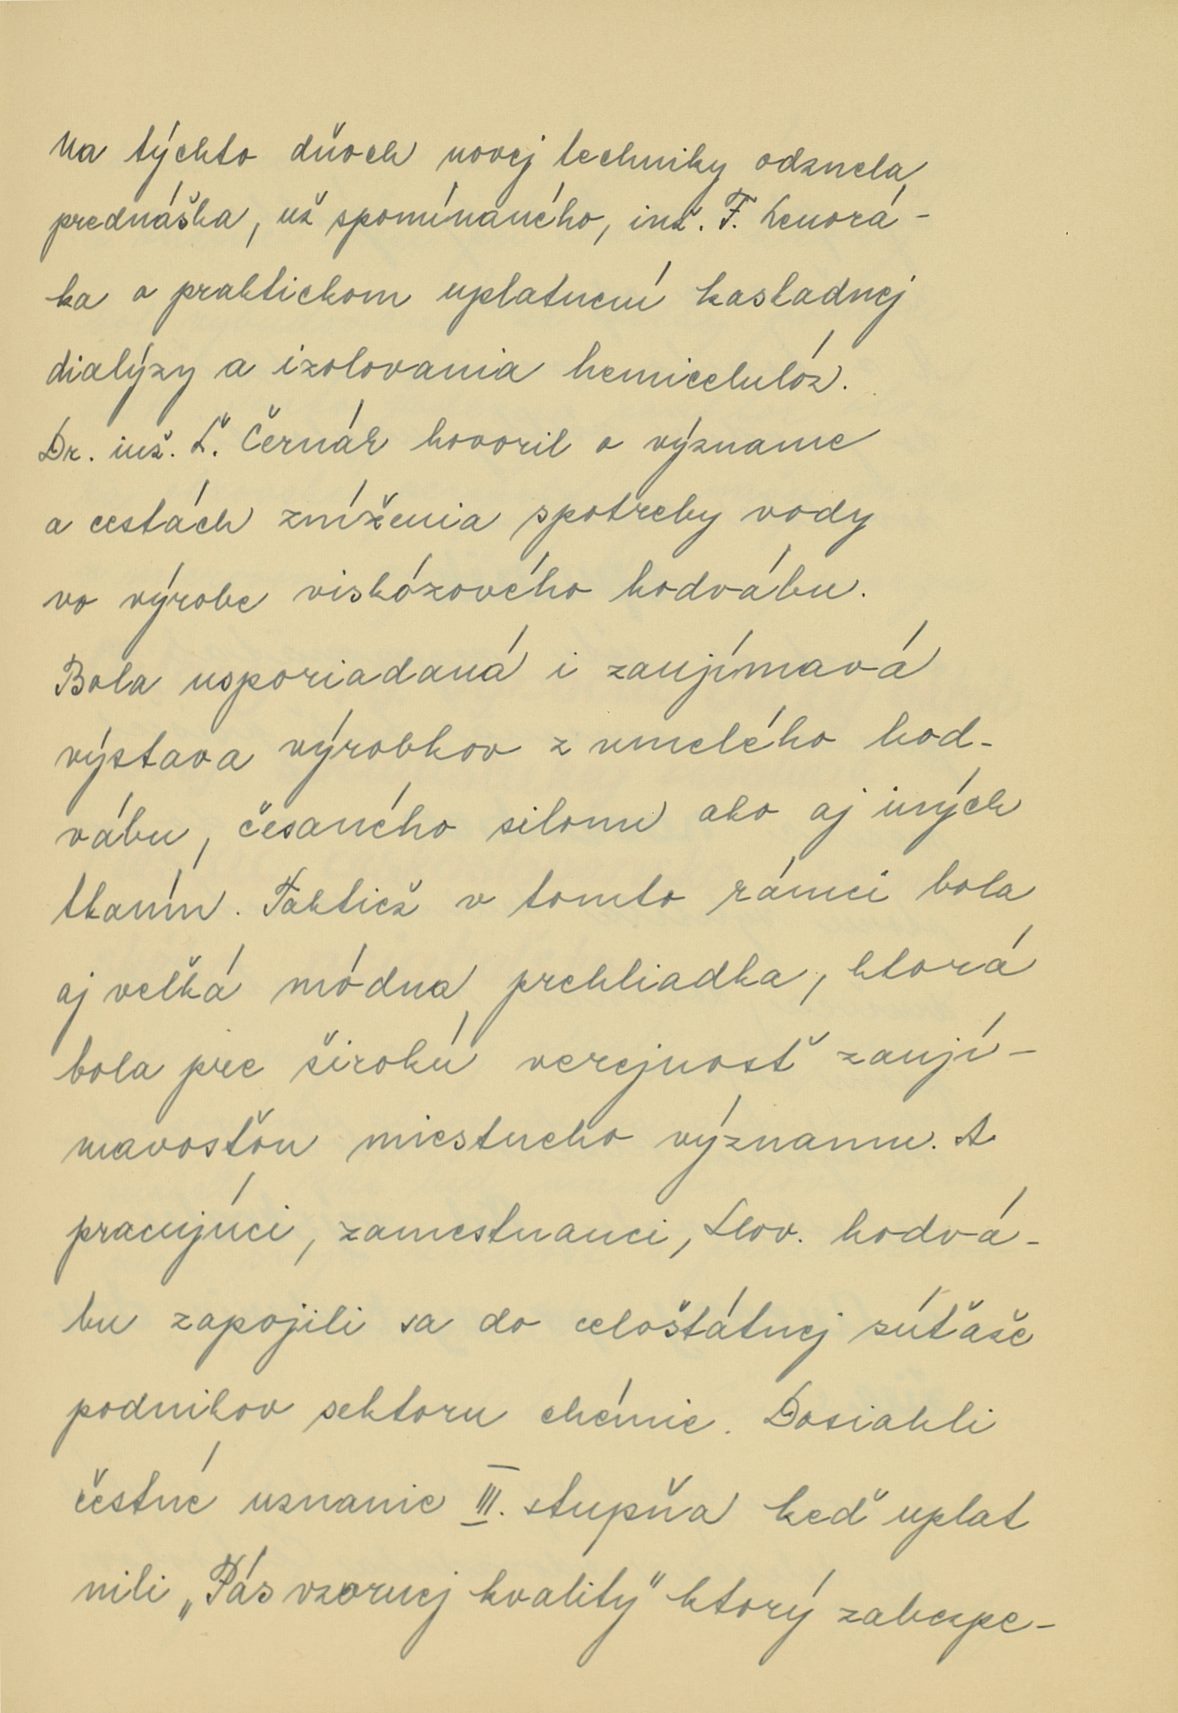 Na týchto dňoch novej techniky odznela
prednáška, už spomínaného, inž. F. Lenorá-
ka o praktickom uplatnení kaskadnej
dialýzy a izolovania hemicelulóz.
Dr. inž. Ľ. Černák hovoril o význame
a cestách zníženia spotreby vody
vo výrobe viskózového hodvábu.
Bola usporiadaná i zaujímavá
výstava výrobkov z umelého hod-
vábu, česaného silonu ako aj iných
tkanín. Taktiež v tomto rámci bola
aj veľká módna prehliadka, ktorá
bola pre širokú verejnosť zaují-
mavosťou miestneho významu. A
pracujúci, zamestnanci, Slov. hodvá-
bu zapojili sa do celoštátnej súťaže
podnikov sektoru chémie. Dosiahli
čestné uznanie III. stupňa keď uplat
nili „Pás vzornej kvality" ktorý zabezpe-